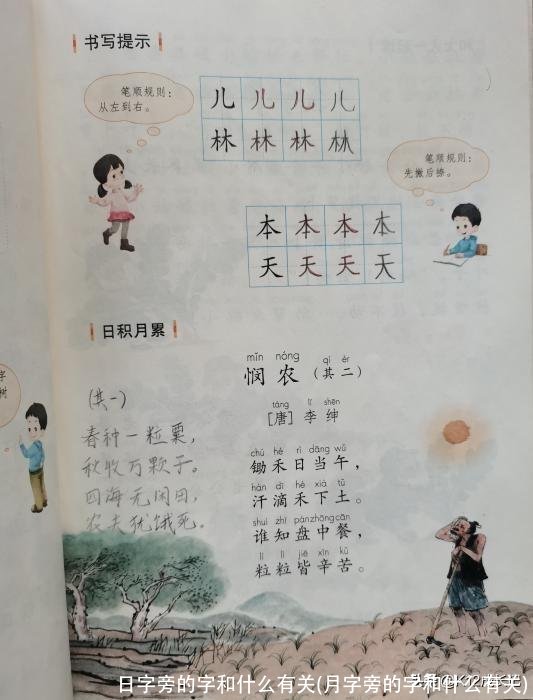 书写提示
笔顺规则:
从左到右。
儿 儿 儿 儿
林 林 林 林
笔顺规则:
先撇后捺。
本 本 本 本
天 天 天 天
日积月累
mǐn nóng qí èr
悯 农 (其 二)
táng lǐ shēn
[唐] 李 绅
chú hé rì dāng wǔ
锄 禾 日 当 午,
hàn dī hé xià tǔ
汗 滴 禾 下 土。
shuí zhī pán zhōng cān
谁 知 盘 中 餐,
lì lì jiē xīn kǔ
粒 粒 皆 辛 苦。
(其一)
春种一粒粟,
秋收万颗子。
四海无闲田,
农夫犹饿死。
字
树
77
日字旁的字和什么有关(月字旁的字和什么有关)